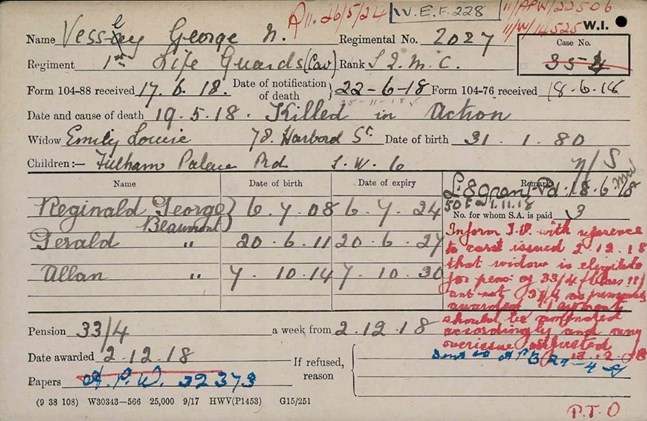 A11. 26/5/24 W.E.F. 228 11/APW/22506
11/W/14525 W.I.
Name Vessey George N. Regimental No. 2027 Case No.
Regiment 1st Life Guards (Cav) Rank S.Q.M.C. 354
Form 104-88 received 17.6.18. Date of notification of death 22-6-18 Form 104-76 received 18.6.18
Date and cause of death 19.5.18. Killed in Action
Widow Emily Louise 78. Harbord St. Date of birth 31.1.80
Children:— Fulham Palace Rd S.W.6 n/S
Name Date of birth Date of expiry Remarks
18.6.18
No. for whom S.A. is paid 3
Reginald George 6.7.08 6.7.24
Beaumont
Gerald " 20-6-11 20-6-27
Allan " 7.10.14 7.10.30
Inform with reference
to card issued 2.12.18
that widow is eligible
for pens of 33/4
and not as previously
awarded.
should be amended
accordingly and any
overissue adjusted
12.12.18
Pension 33/4 a week from 2.12.18
Date awarded 2.12.18 If refused, reason
Papers A.P.W. 32373
(9 38 108) W30343—566 25,000 9/17 HWV(P1453) G15/251
P.T.O